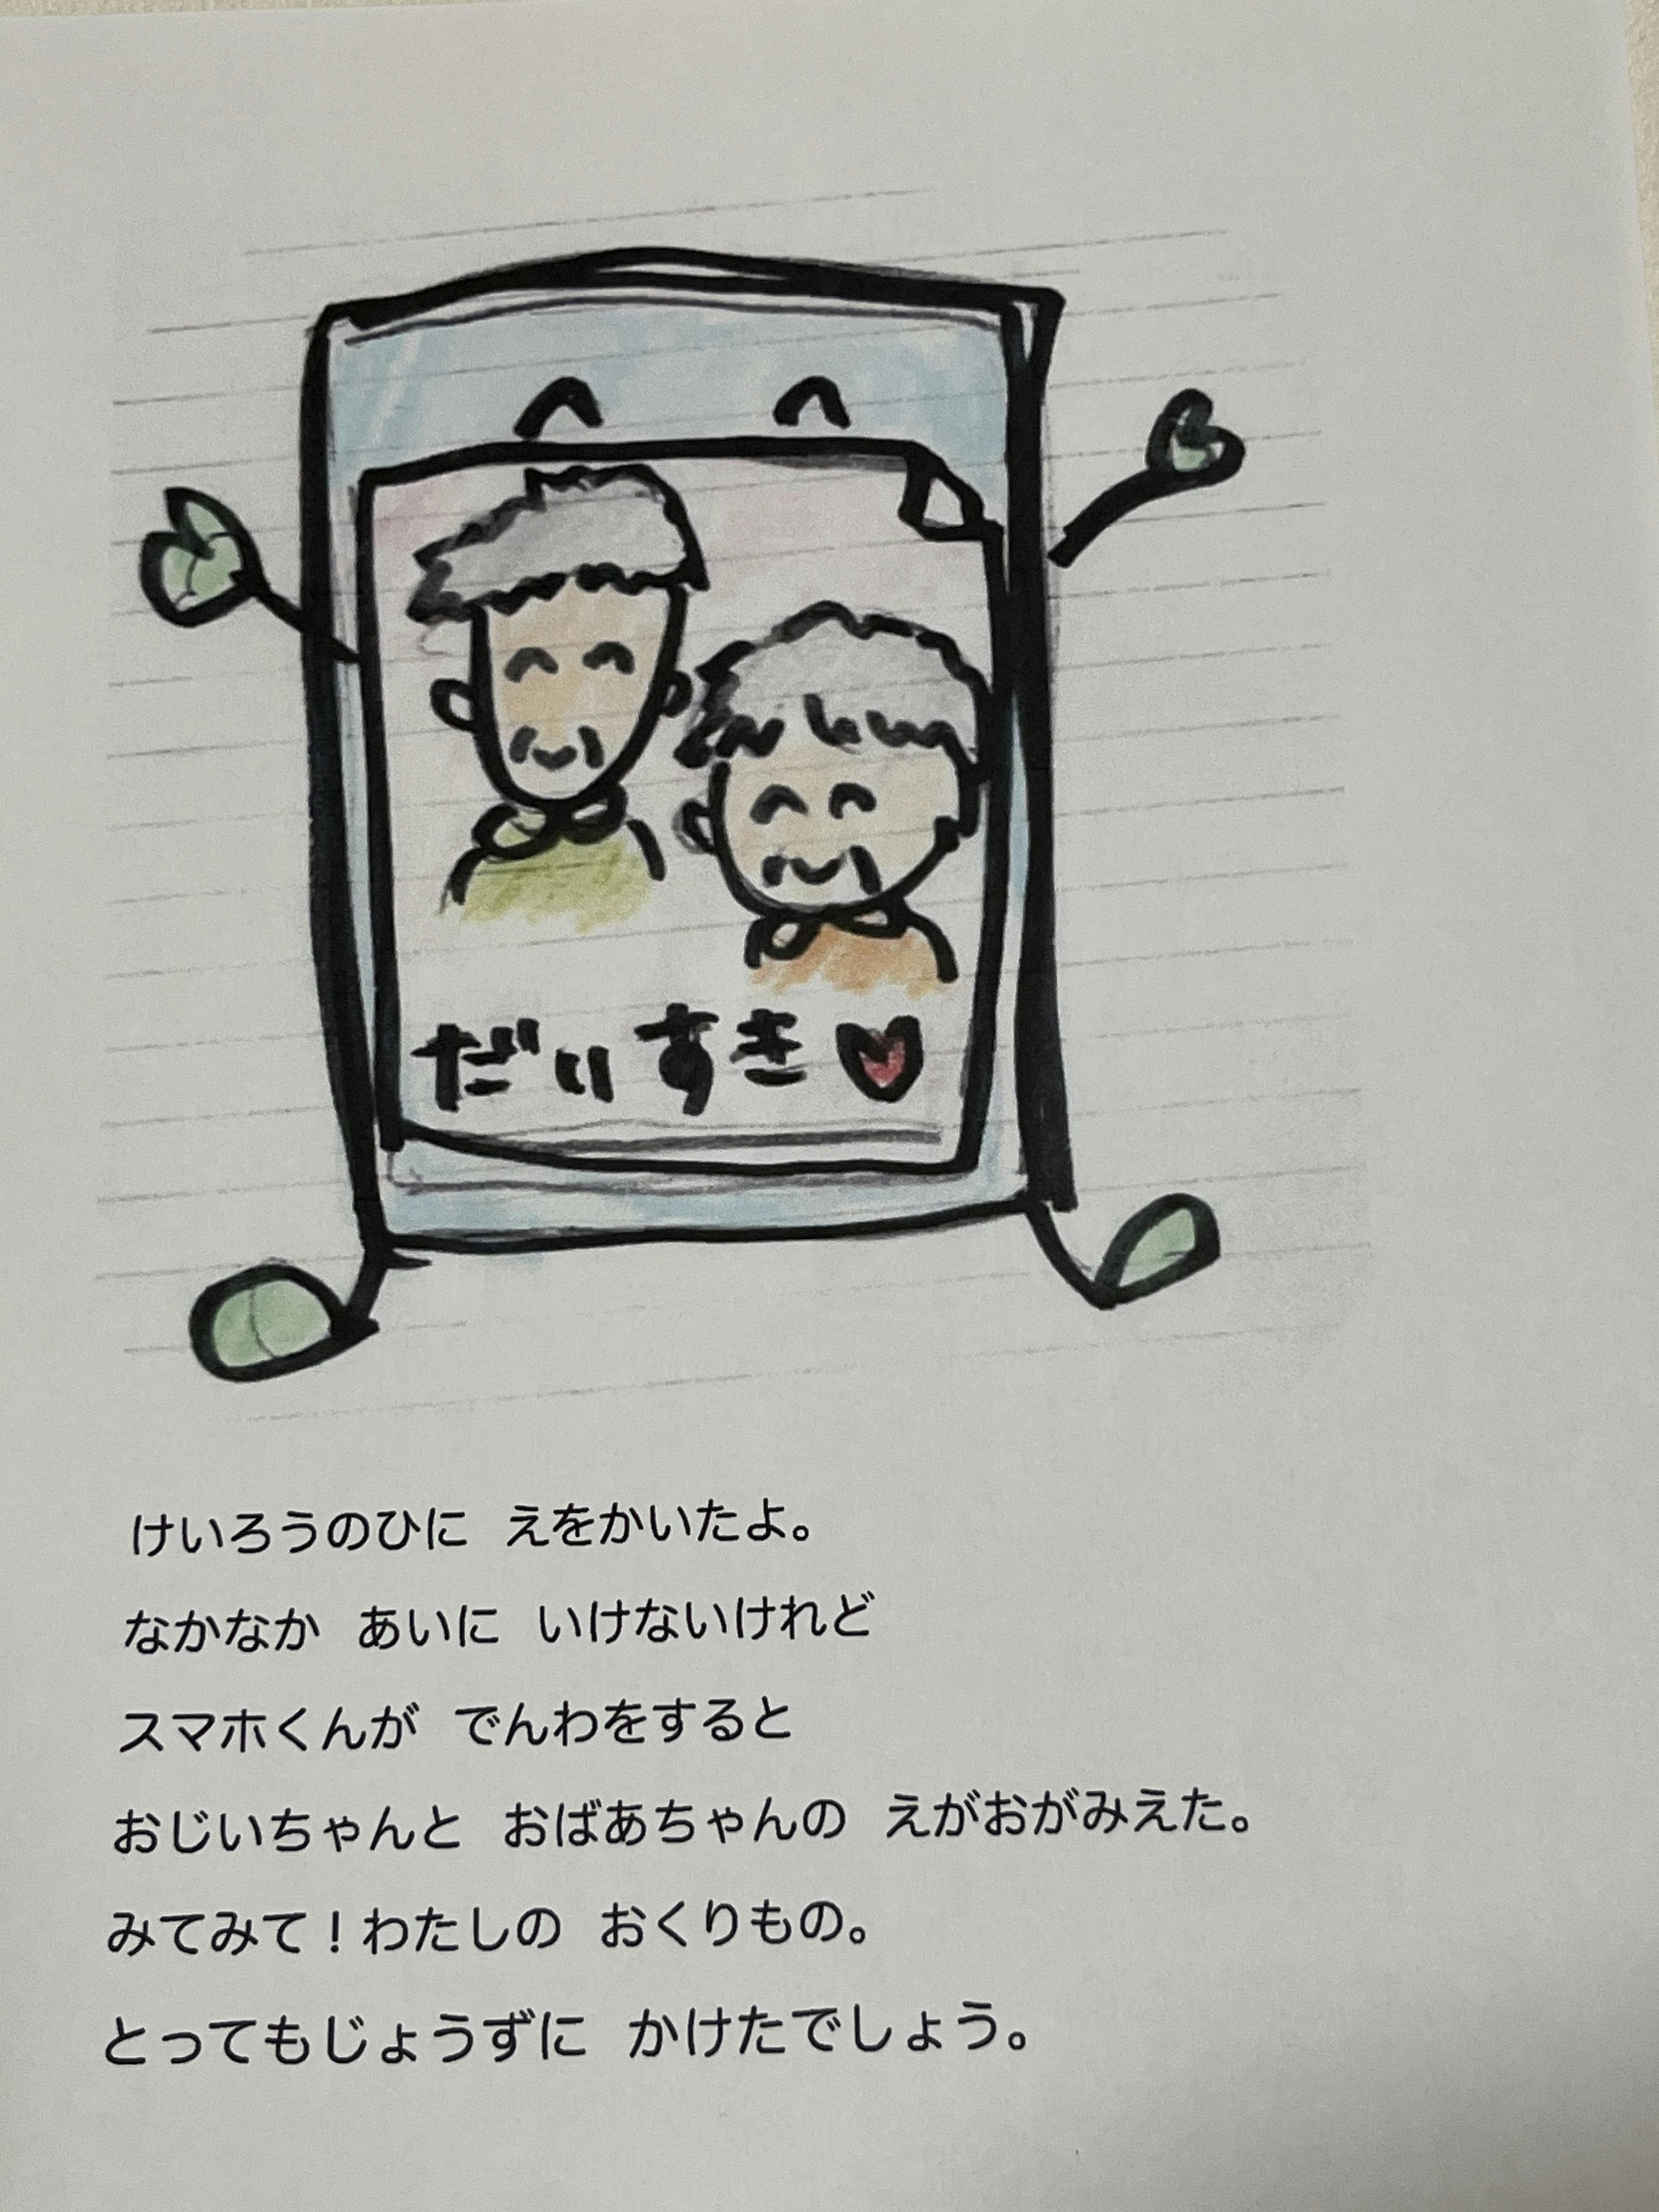 だいすき
けいろうのひに えをかいたよ。
なかなか あいに いけないけれど
スマホくんが でんわをすると
おじいちゃんと おばあちゃんの えがおがみえた。
みてみて！わたしの おくりもの。
とってもじょうずに かけたでしょう。